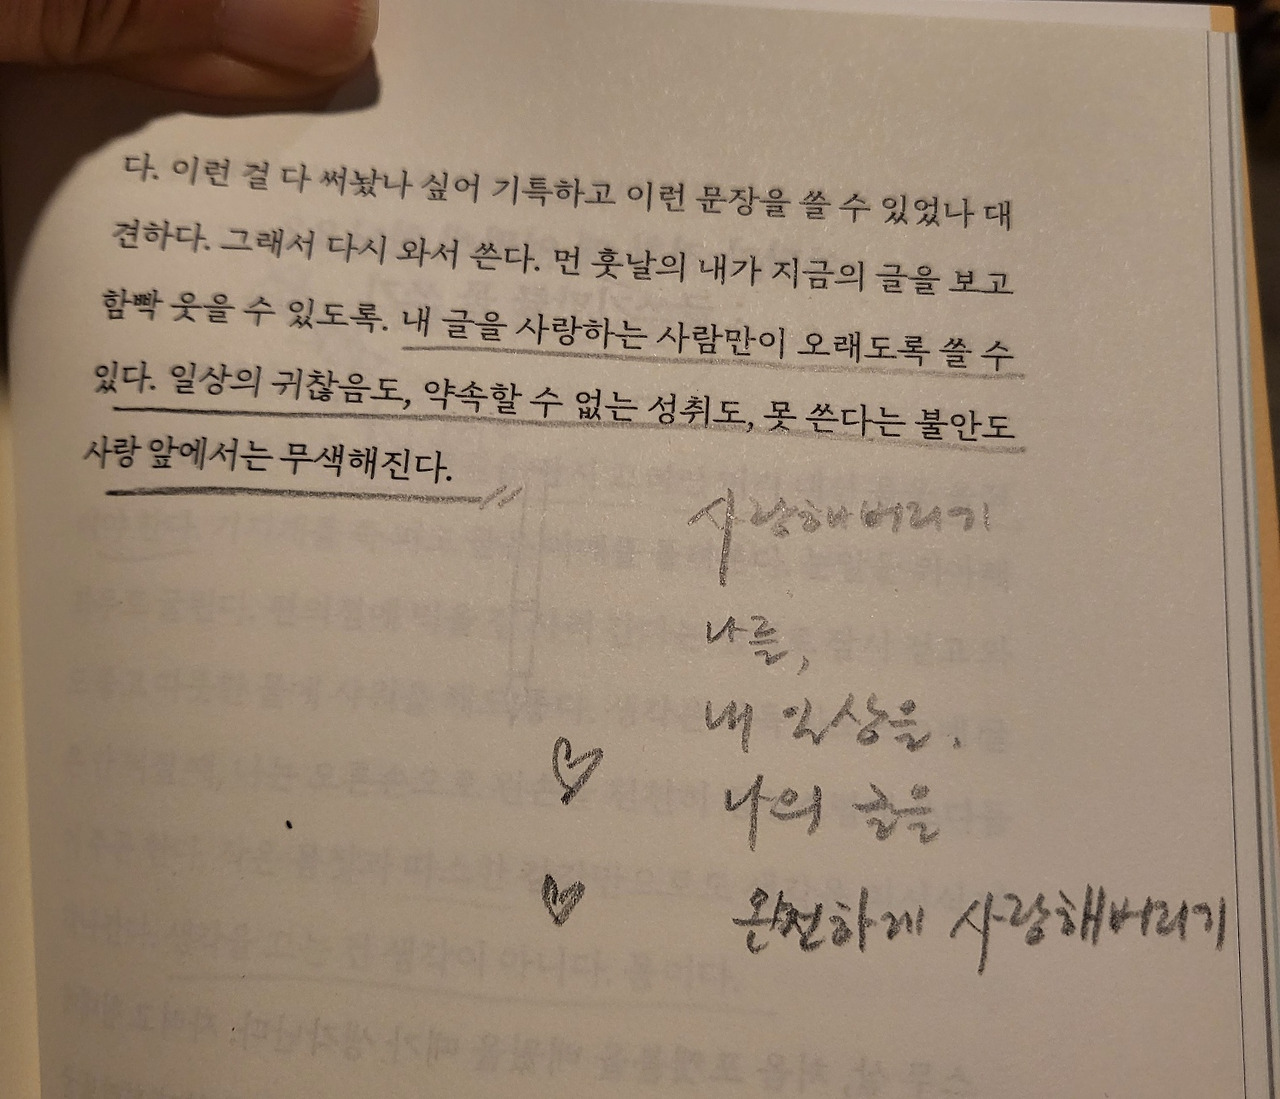 다. 이런 걸 다 써놨나 싶어 기특하고 이런 문장을 쓸 수 있었나 대
견하다. 그래서 다시 와서 쓴다. 먼 훗날의 내가 지금의 글을 보고
함빡 웃을 수 있도록. 내 글을 사랑하는 사람만이 오래도록 쓸 수
있다. 일상의 귀찮음도, 약속할 수 없는 성취도, 못 쓴다는 불안도
사랑 앞에서는 무색해진다.
사랑해버리기
나를,
내 일상을,
나의 글을
완전하게 사랑해버리기